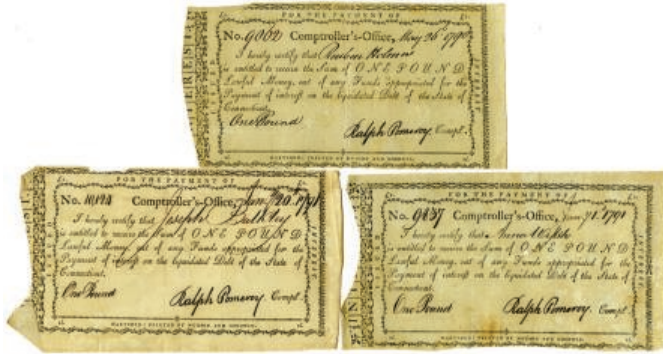 FOR THE PAYMENT OF
INTEREST
INTEREST
No. 9002 Comptroller's-Office, May 26th 1790
I hereby certify that Reuben Holmes
is entitled to receive the Sum of ONE POUND
Lawful Money, out of any Funds appropriated for the
Payment of interest on the liquidated Debt of the State of
Connecticut.
One Pound Ralph Pomeroy, Compt.
HARTFORD: PRINTED BY HUDSON AND GOODWIN.
FOR THE PAYMENT OF
INTEREST
No. 10124 Comptroller's-Office, 1791
I hereby certify that Joseph
is entitled to receive the Sum of ONE POUND
Lawful Money, out of any Funds appropriated for the
Payment of interest on the liquidated Debt of the State of
Connecticut.
One Pound Ralph Pomeroy Compt.
HARTFORD: PRINTED BY HUDSON AND GOODWIN.
FOR THE PAYMENT OF
INTEREST
No. 9837 Comptroller's-Office, 1791
I hereby certify that
is entitled to receive the Sum of ONE POUND
Lawful Money, out of any Funds appropriated for the
Payment of interest on the liquidated Debt of the State of
Connecticut.
One Pound Ralph Pomeroy, Compt.
HARTFORD: PRINTED BY HUDSON AND GOODWIN.